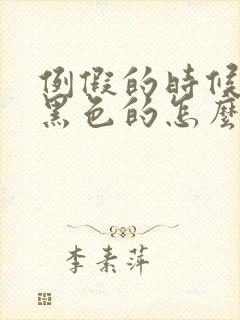 例假的時候
黑色的怎麼
李素萍